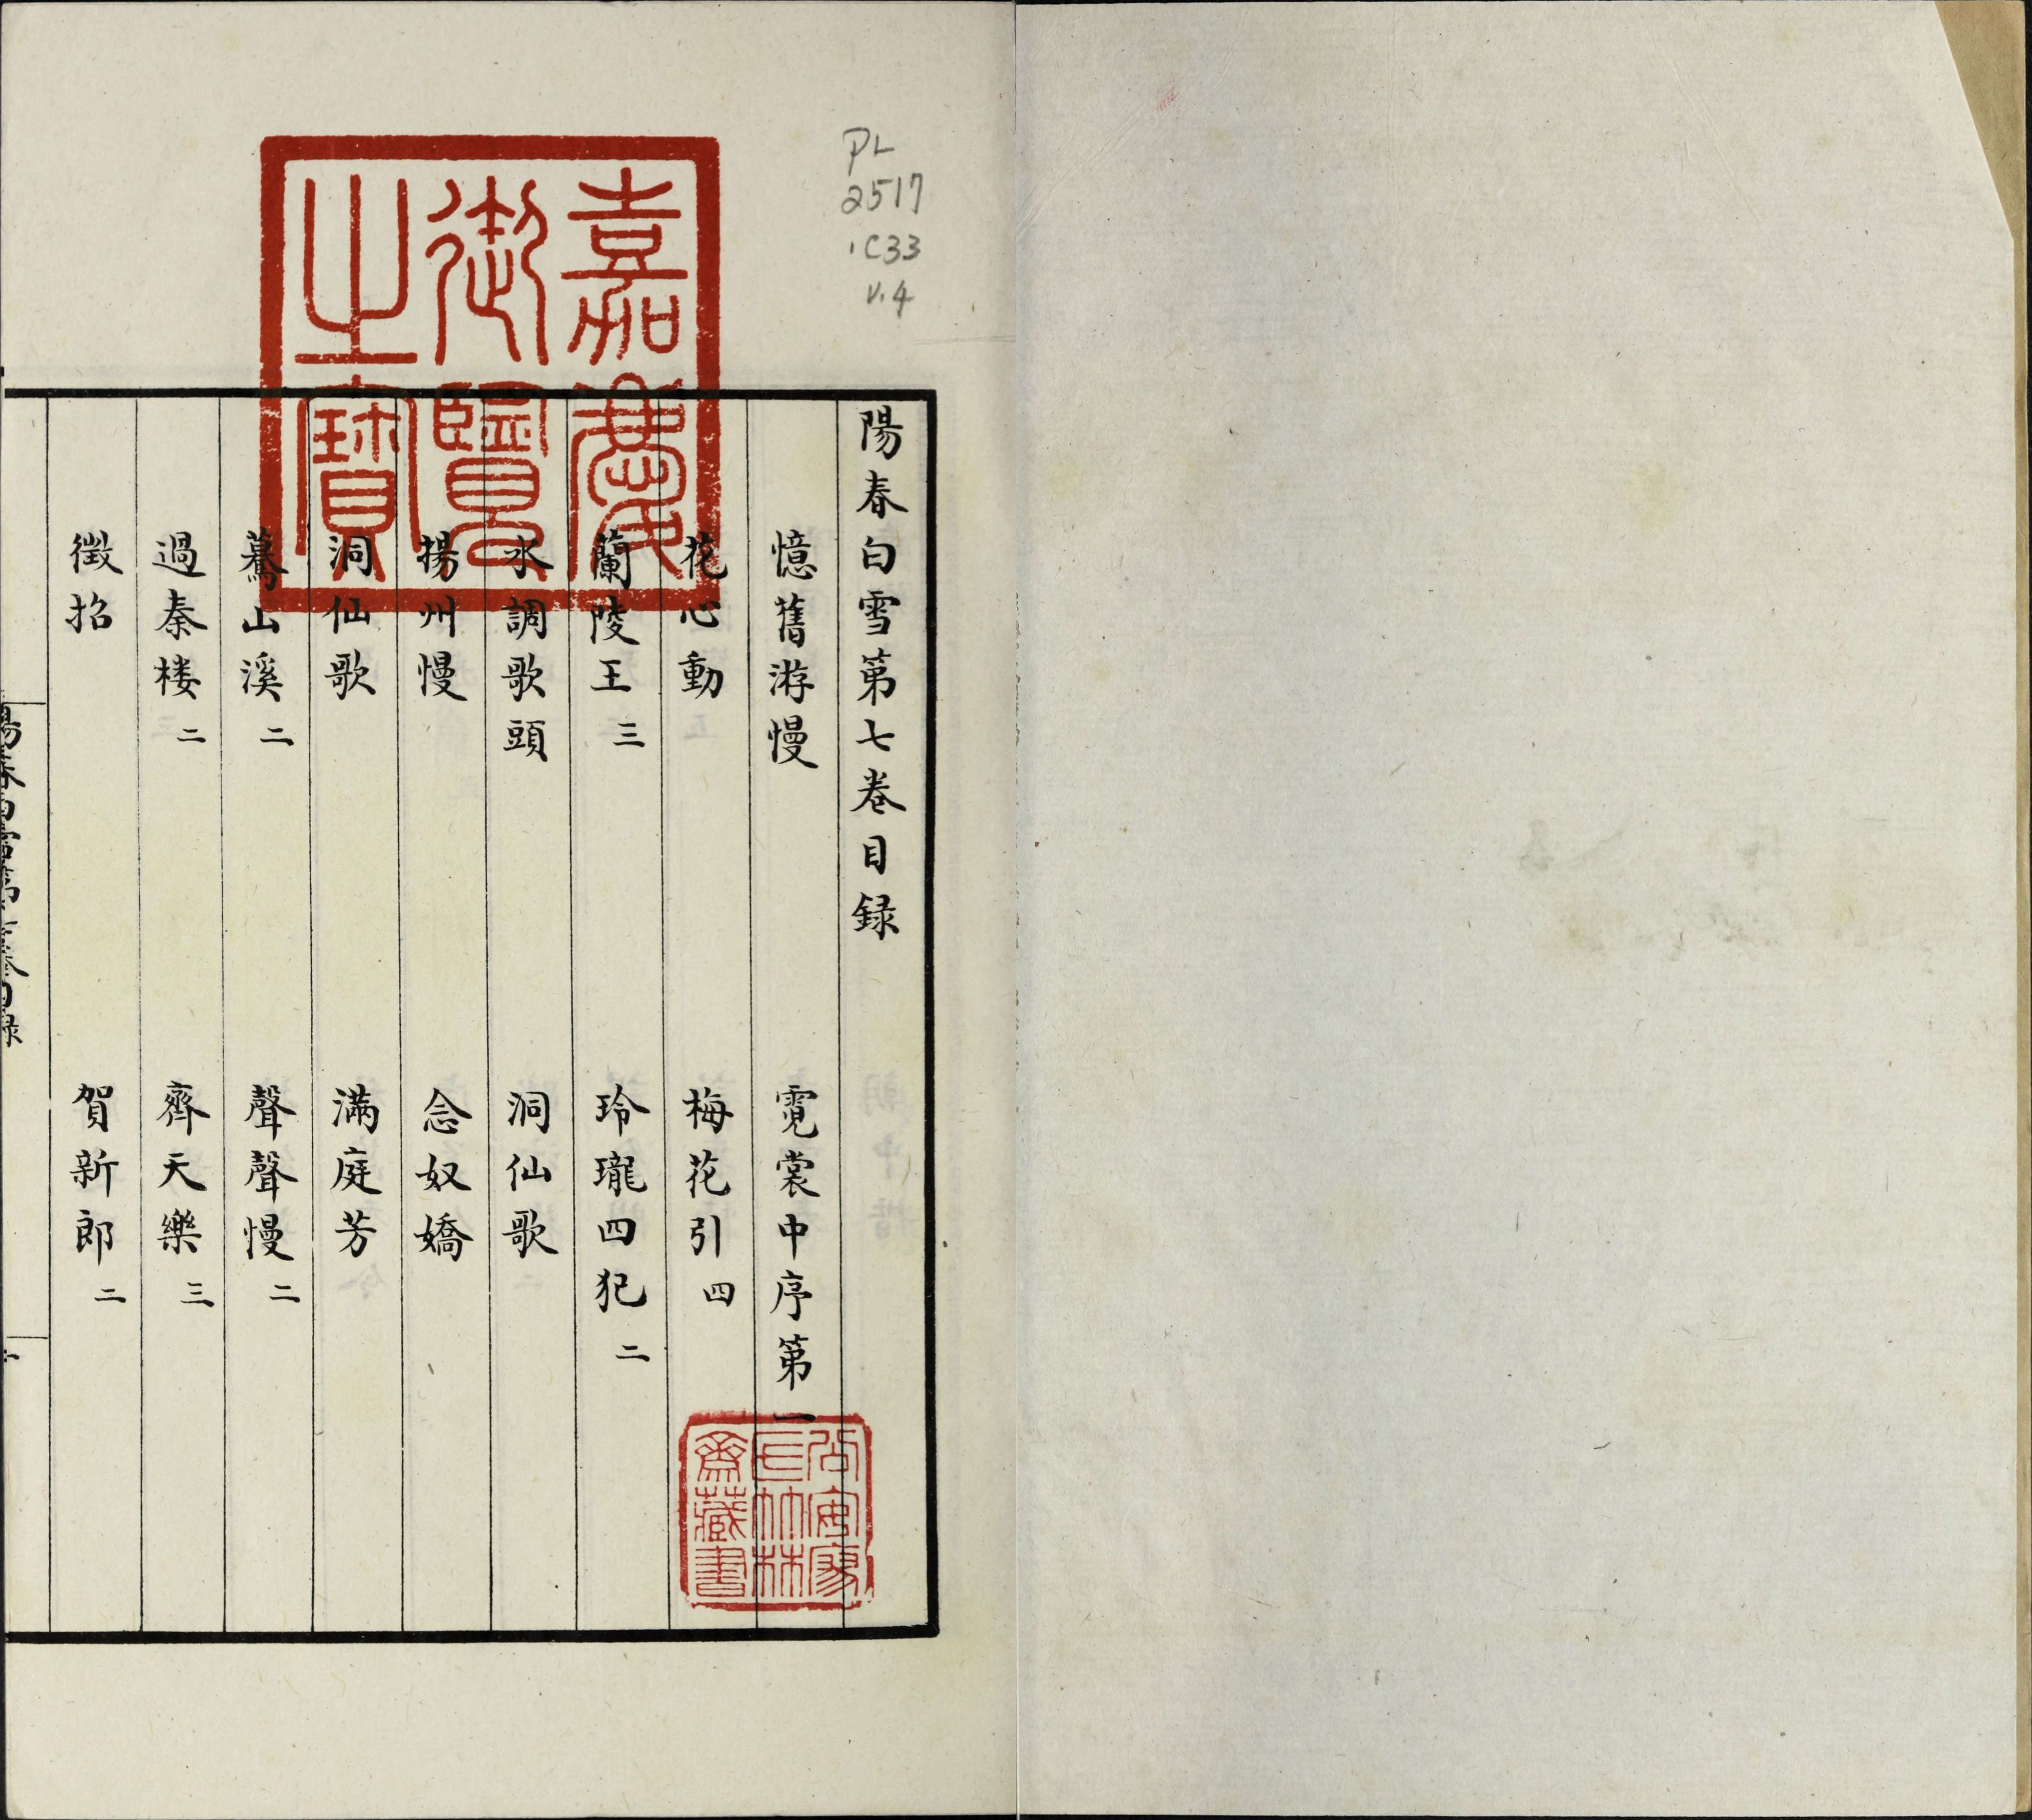 PL
2517
.C33
v.4
嘉慶
御覽
之寶
陽春白雪第七卷目錄
憶舊游慢　霓裳中序第一
花心動　梅花引 四
蘭陵王 三　玲瓏四犯 二
水調歌頭　洞仙歌
揚州慢　念奴嬌
洞仙歌　滿庭芳
驀山溪 二　聲聲慢 二
過秦樓 二　齊天樂 三
徵招　賀新郎 二
陽春白雪第七卷目錄
公安家
長竹林
齋藏書